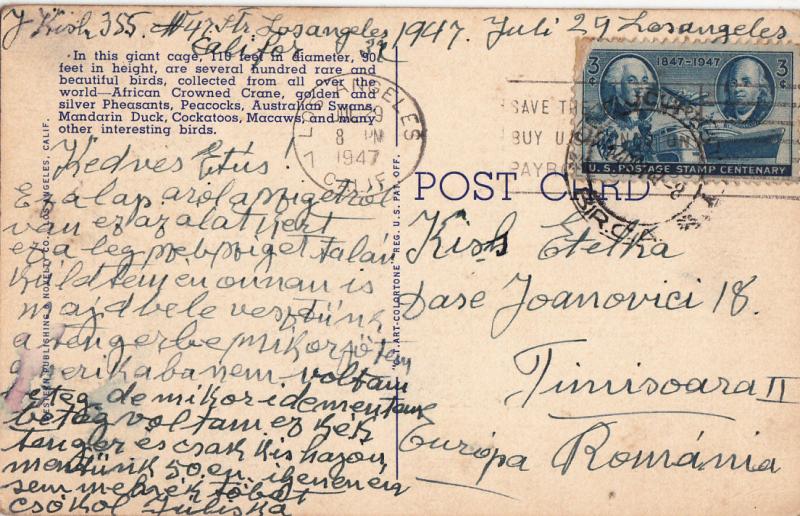 J Kish 355. 47 Str. Losangeles 1947. Juli 29 Losangeles
Califor
In this giant cage, 110 feet in diameter, 90
feet in height, are several hundred rare and
beautiful birds, collected from all over the
world—African Crowned Crane, golden and
silver Pheasants, Peacocks, Australian Swans,
Mandarin Duck, Cockatoos, Macaws, and many
other interesting birds.
LOS ANGELES
29
8 PM
1947
CALIF.
SAVE THE
BUY U.S.
PAYRO
3¢ 1847-1947 3¢
U.S. POSTAGE STAMP CENTENARY
BIR.
Kedves Etus!
Ez a lap arol a szigetröl
van ez az alatt
ez a legszebb sziget talán
küldtem en onnan is
majd bele vesztünk
a tengerbe mikor jötem
amerikaba nem voltam
beteg de mikor ide mentünk
beteg voltam ez kék
tenger es csak kis hajon
mentünk 50 en
sem többet
csókol Juliska
WESTERN PUBLISHING & NOVELTY CO., LOS ANGELES, CALIF.
"C.T. ART-COLORTONE" REG. U.S. PAT. OFF.
POST CARD
Kish Etelka
Dase Joanovici 18.
Timisoara II
Európa România